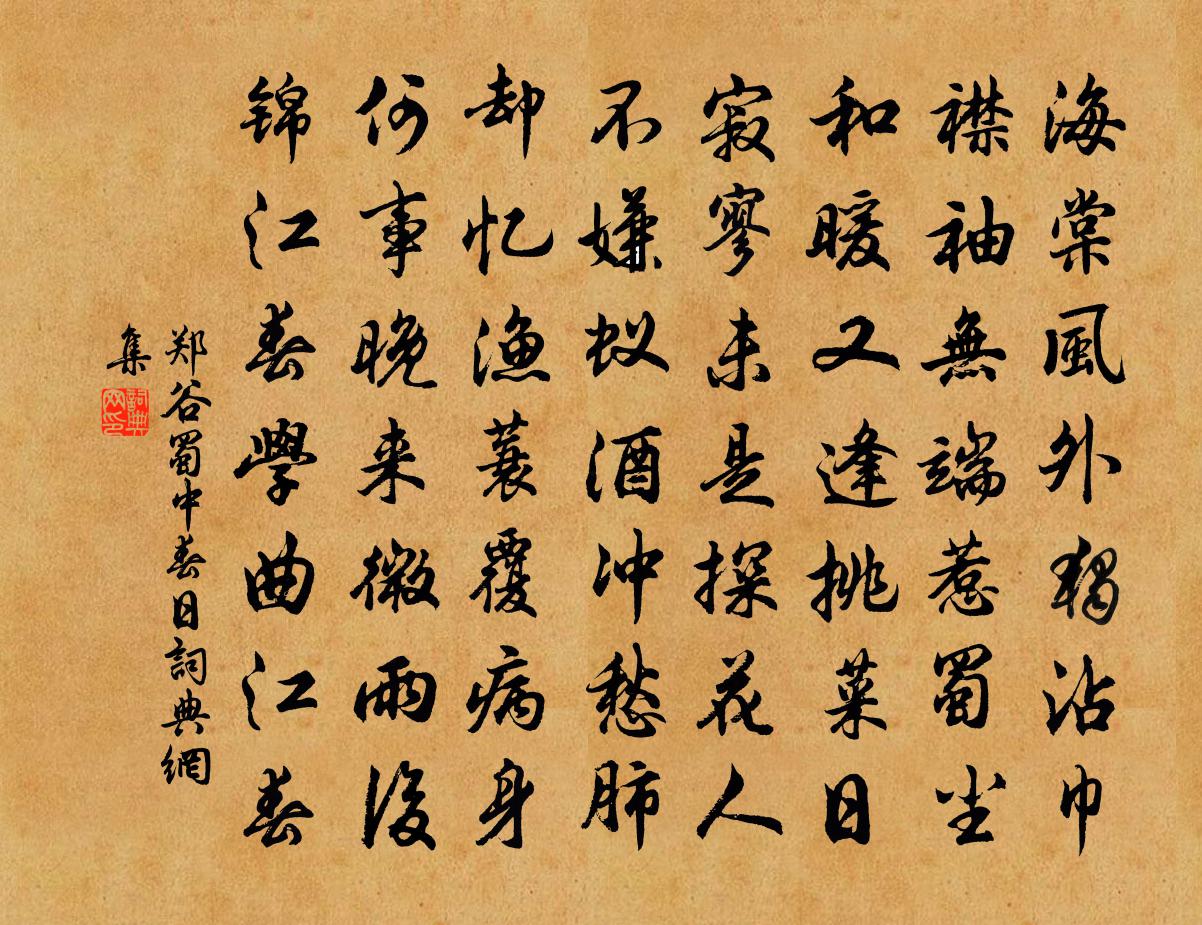 海棠風外獨沾巾
襟袖無端惹蜀尘
和暖又逢挑菜日
寂寥未是探花人
不嫌蚁酒冲愁肺
却忆漁蓑覆病身
何事晚来微雨後
锦江春學曲江春
郑谷蜀中春日詞典網
集
詞典
网印